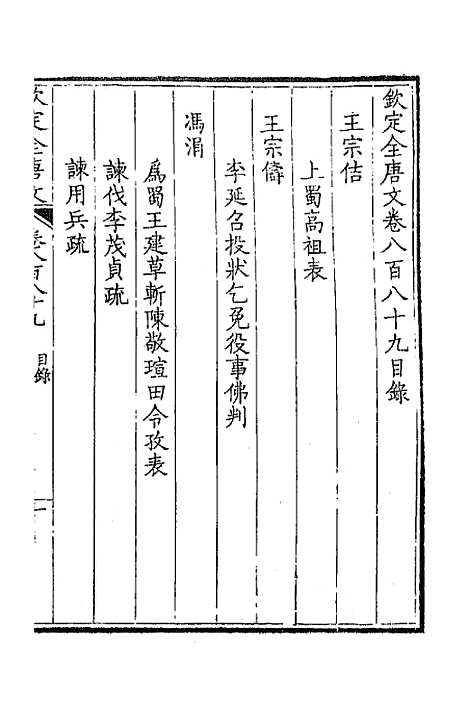 欽定全唐文卷八百八十九目錄
王宗佶
上蜀高祖表
王宗儔
李延召投狀乞免役事佛判
馮涓
爲蜀王建草斬陳敬瑄田令孜表
諫伐李茂貞疏
諫用兵疏
欽定全唐文
卷八百八十九
目錄
一